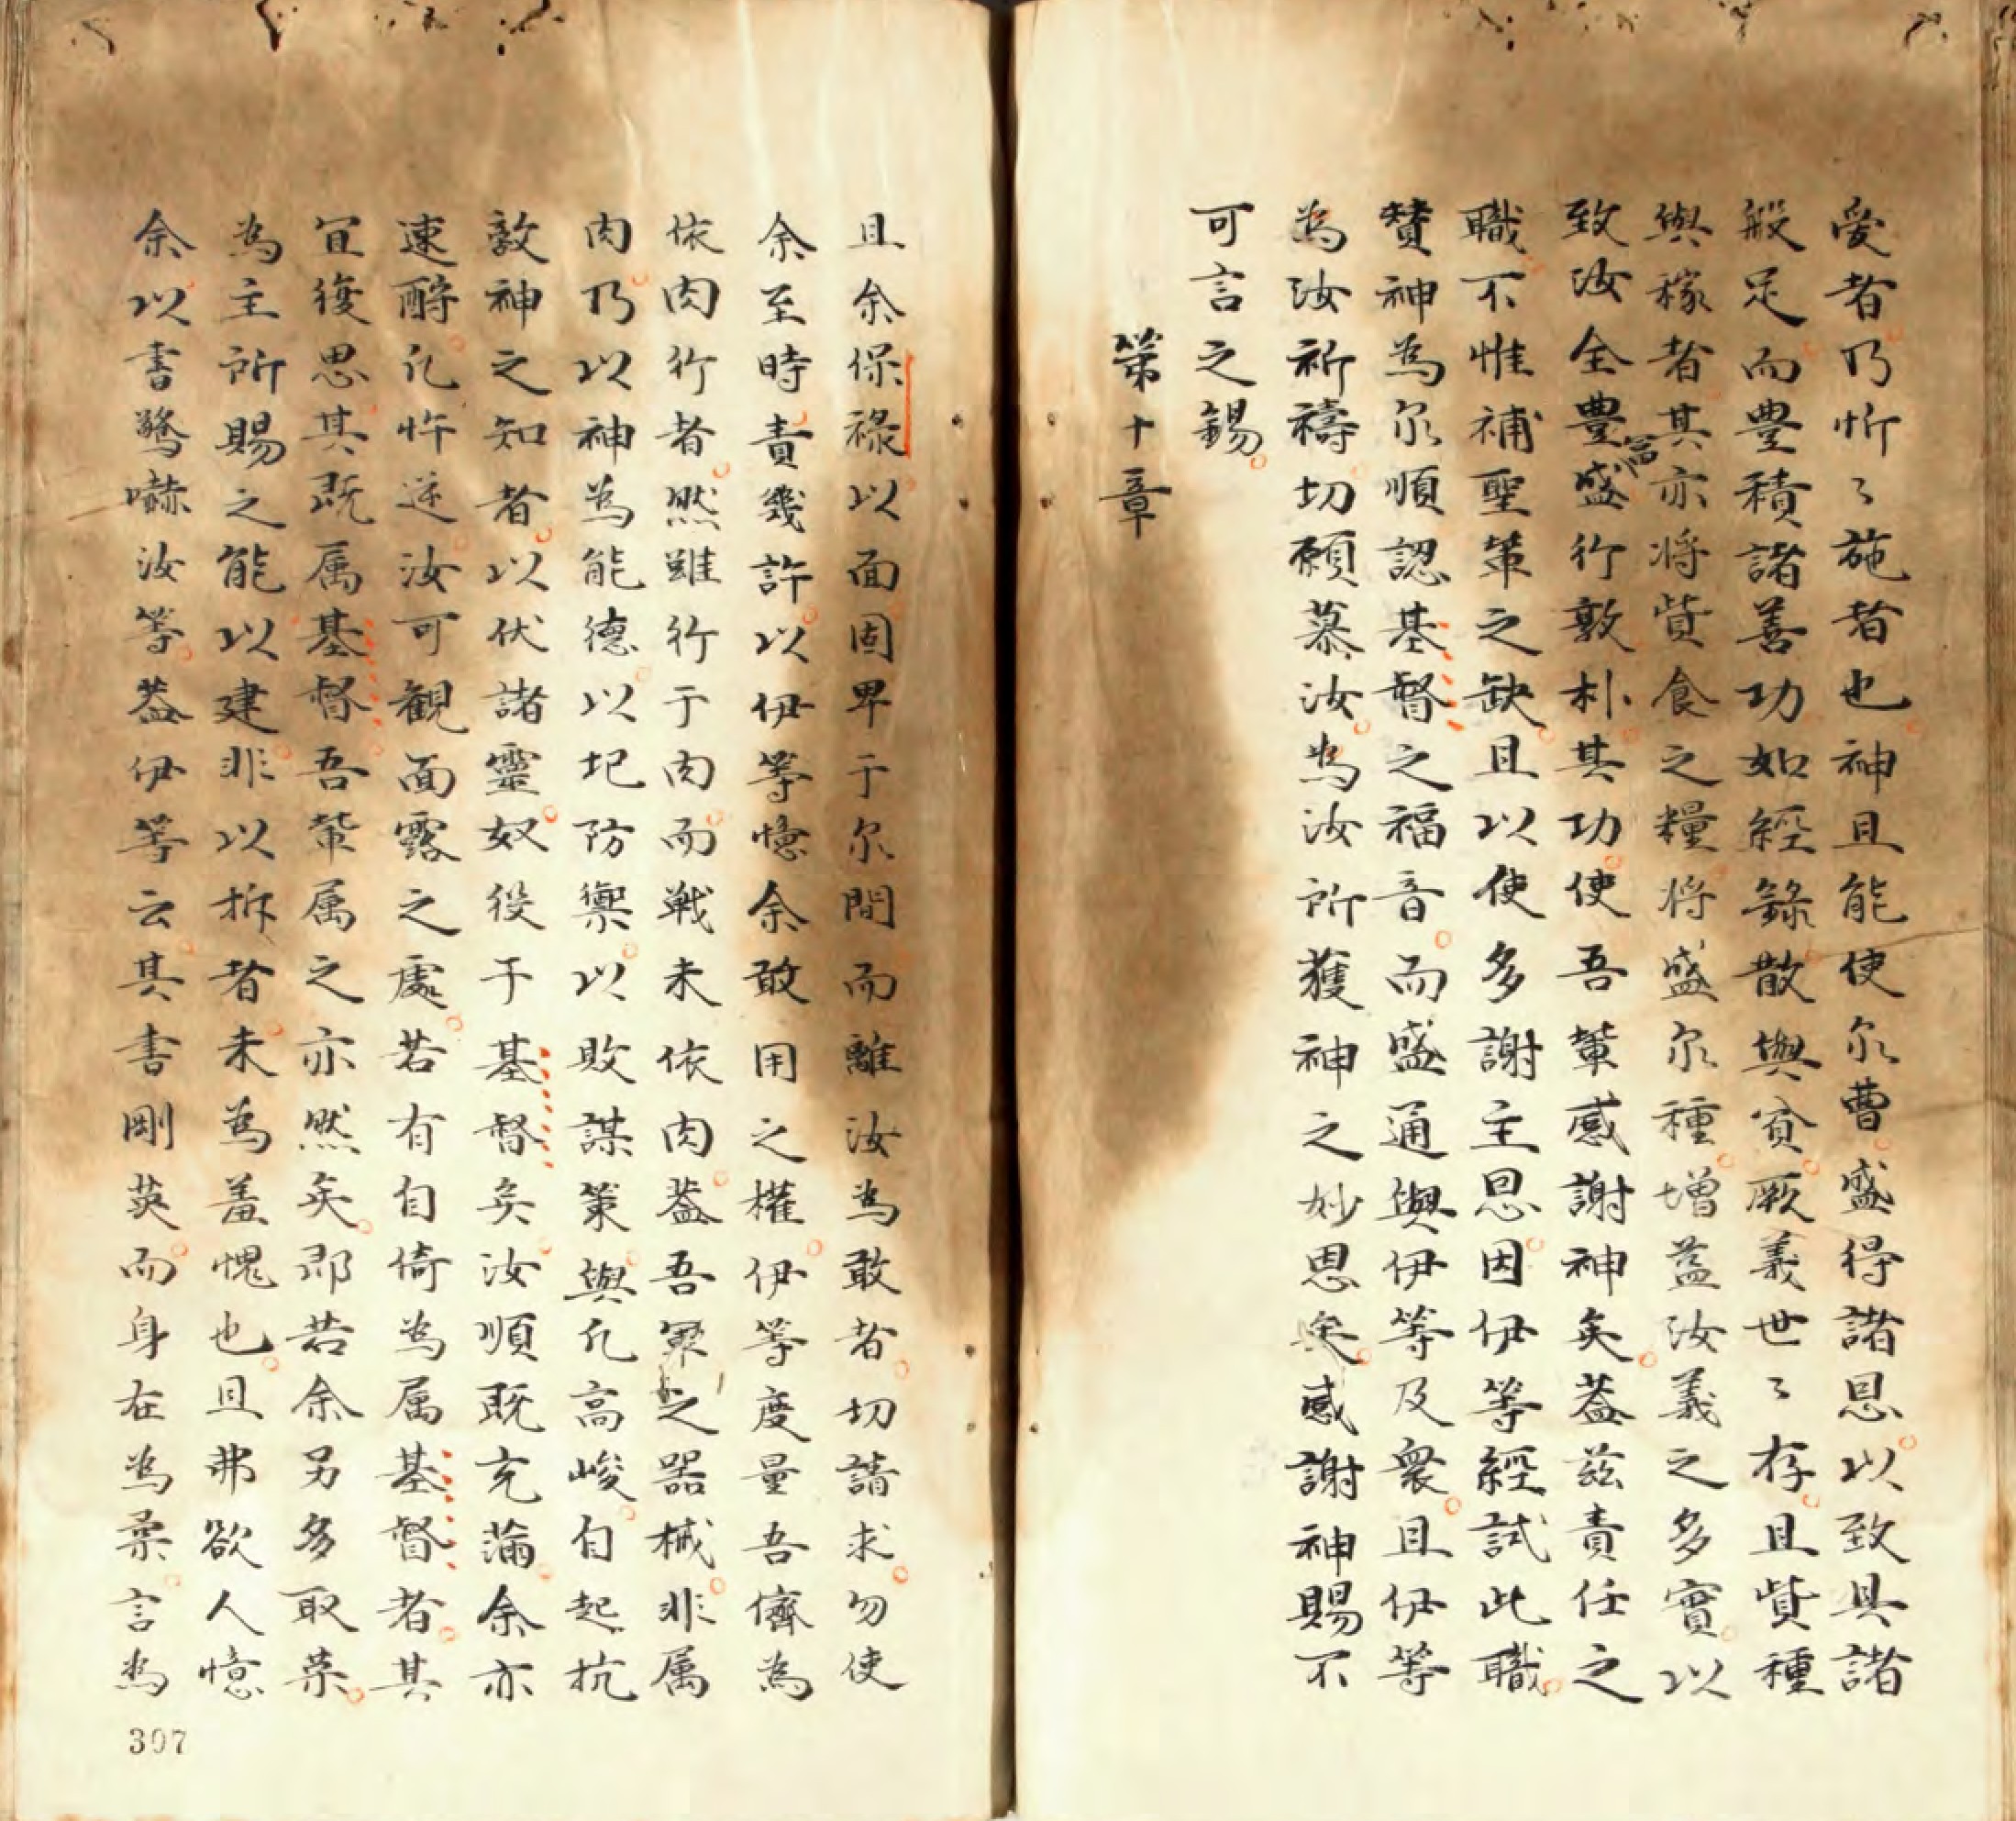 愛者乃忻〻施者也神且能使尔曹盛得諸恩以致具諸
般足而豊積諸善功如經錄散與貧厥義世〻存且賞種
與稼者其亦将賞食之糧将盛尔種增益汝義之多實以
致汝全豊富盛行敦朴其功使吾輩感謝神矣蓋茲責任之
職不惟補聖策之缺且以使多謝主恩因伊等經試此職
賛神為尔順認基督之福音而盛通與伊等及衆且伊等
為汝祈禱切願慕汝為汝所獲神之妙恩矣感謝神賜不
可言之錫
第十章
且余保祿以面固卑于尔間而離汝為敢者切請求勿使
余至時責幾許以伊等憶余敢用之權伊等度量吾儕為
依肉行者然雖行于肉而戦未依肉蓋吾軍之器械非属
肉乃以神為能德以圮防禦以敗謀策與凢高峻自起抗
敵神之知者以伏諸靈奴役于基督矣汝順既充滿余亦
速酧凢忤逆汝可觀面露之處若有自倚為属基督者其
宜復思其既属基督吾輩属之亦然矣即若余另多取榮
為主所賜之能以建非以拆者未為羞愧也且弗欲人憶
余以書驚嚇汝等蓋伊等云其書剛英而身在為柔言為
307